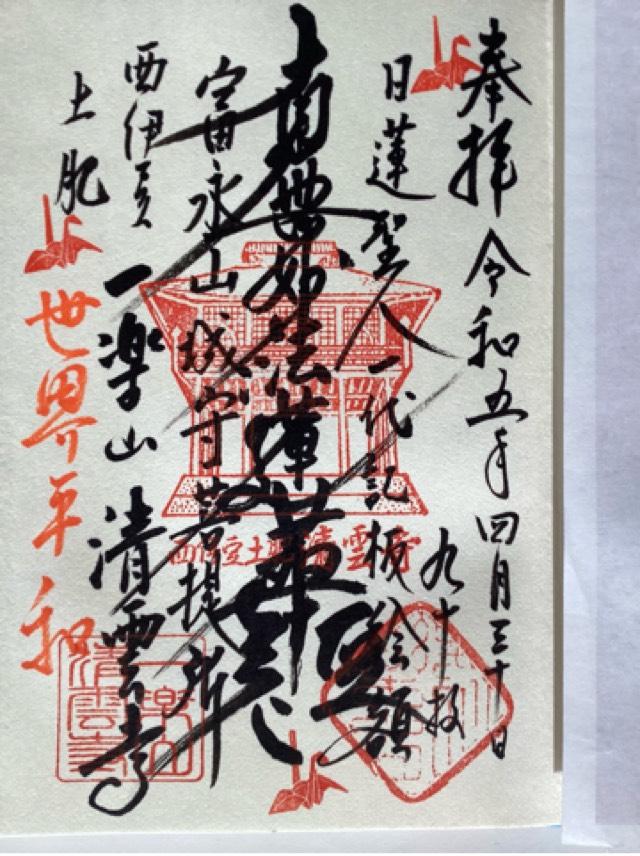 奉拝 令和五年四月三十日
九十枚
日蓮聖人一代記板絵額
南無妙法蓮華経
富永山城守菩提所
西伊豆
土肥
一楽山 清雲寺
世界平和
西伊豆土肥清雲寺
一楽山
清雲寺